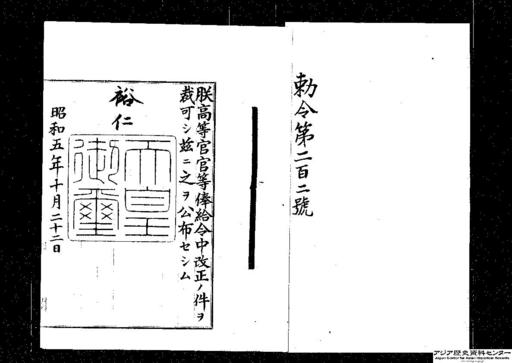 勅令第二百二號
朕高等官官等俸給令中改正ノ件ヲ
裁可シ茲ニ之ヲ公布セシム
裕仁
天皇
御璽
昭和五年十月二十二日
アジア歴史資料センター
Japan Center for Asian Historical Records